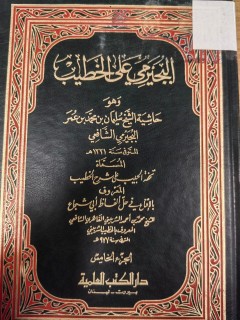 البجيرمي على الخطيب
وهو
حاشية الشيخ سليمان بن محمد بن عمر
البجيرمي الشافعي
المتوفى سنة ١٢٢١ هـ
المسماة
تحفة الحبيب على شرح الخطيب
المعروف
بالإقناع في حل ألفاظ أبي شجاع
للشيخ محمد بن أحمد الشربيني القاهري الشافعي
المعروف بالخطيب الشربيني
المتوفى سنة ٩٧٧ هـ
الجزء الخامس
دار الكتب العلمية
بيروت - لبنان